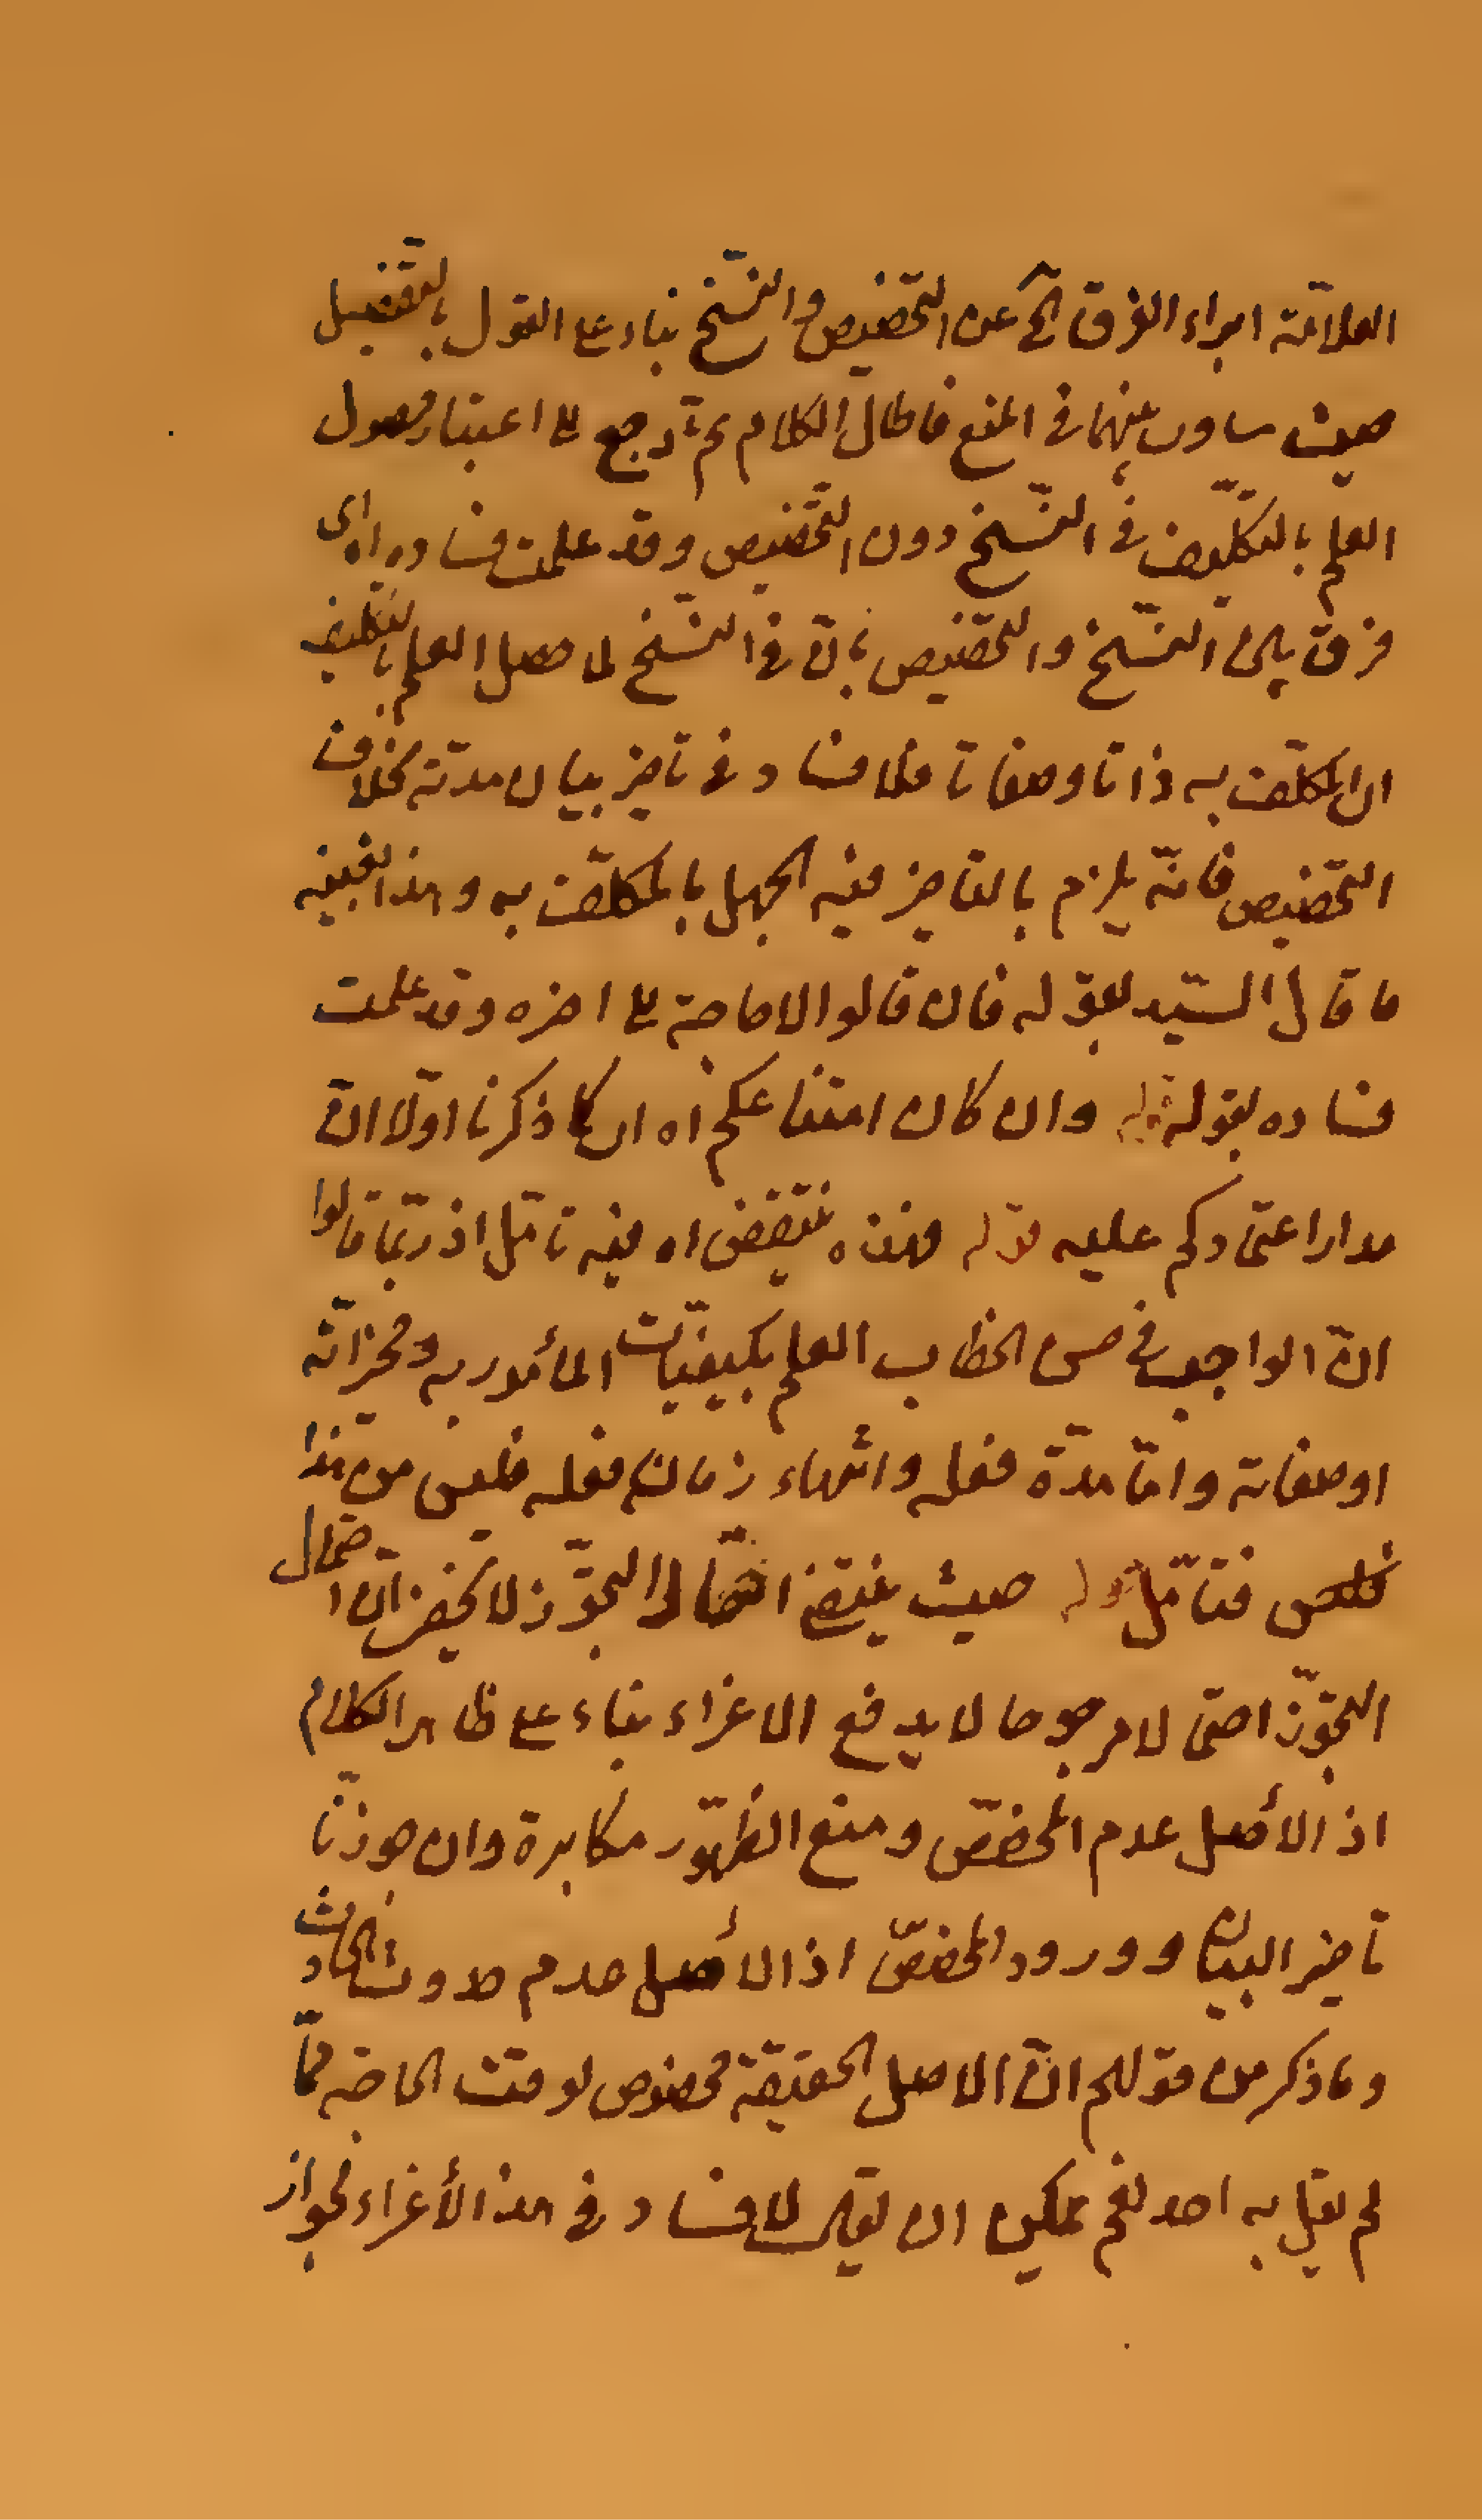 العلامّة ابداء الفرق الخ عن التخصيص والنسّخ بناء على القول بالتفصيل
حيث ساوى بينهما في المنع فاطال الكلام ثم رجع الى اعتبار حصول
العلم بالتكليف في النسّخ دون التخصيص وقد علمت فساده اه اى
فرق بين النسّخ والتخصيص بانّ في النسّخ لما حصل العلم بالتكليف
ان المكلّف به ذاتا وصفاتا فلا فساد في تاخير بيان مدتّه بخلاف
التخصيص فانّه يلزم بالتاخير فيه الجهل بالمكلّف به وهذا بعينه
ما قال السّيد بقوله فان قالوا لا حاجة الى اخره وقد علمت
فساده بقوله قوله وان كان امتناعكم اه اى كما ذكرنا اوّلا انّ
مدار اعتمادكم عليه قوله فهذه ينتقض اه فيه تامّل اذ ربّما قالوا
انّ الواجب في حسن الخطاب العلم بكيفيّات المأمور به ومميزاتّه
اوصفاته وامّا مدّة فعله وانتهاء زمان فعله فليس من هذا
فليس فتامّل قوله حيث ينتفى احتمال التجوّز لا يخفى انّ احتمال
التجوّز احتمالا مرجوحا لا يدفع الاغراء بناء على ظاهر الكلام
اذ الأصل عدم المخصّص ومنع الظهّور مكابرة وان جوزنّا
تاخير البيان وورود المخصصّ اذ الأصل عدم حدوث الحادث
وما ذكر من قولهم انّ الاصل الحقيقّة مخصوص بوقت الحاجة ممّا
لم يقل به احد نعم يمكن ان يقال لا فساد في هذا الأغراء لجواز